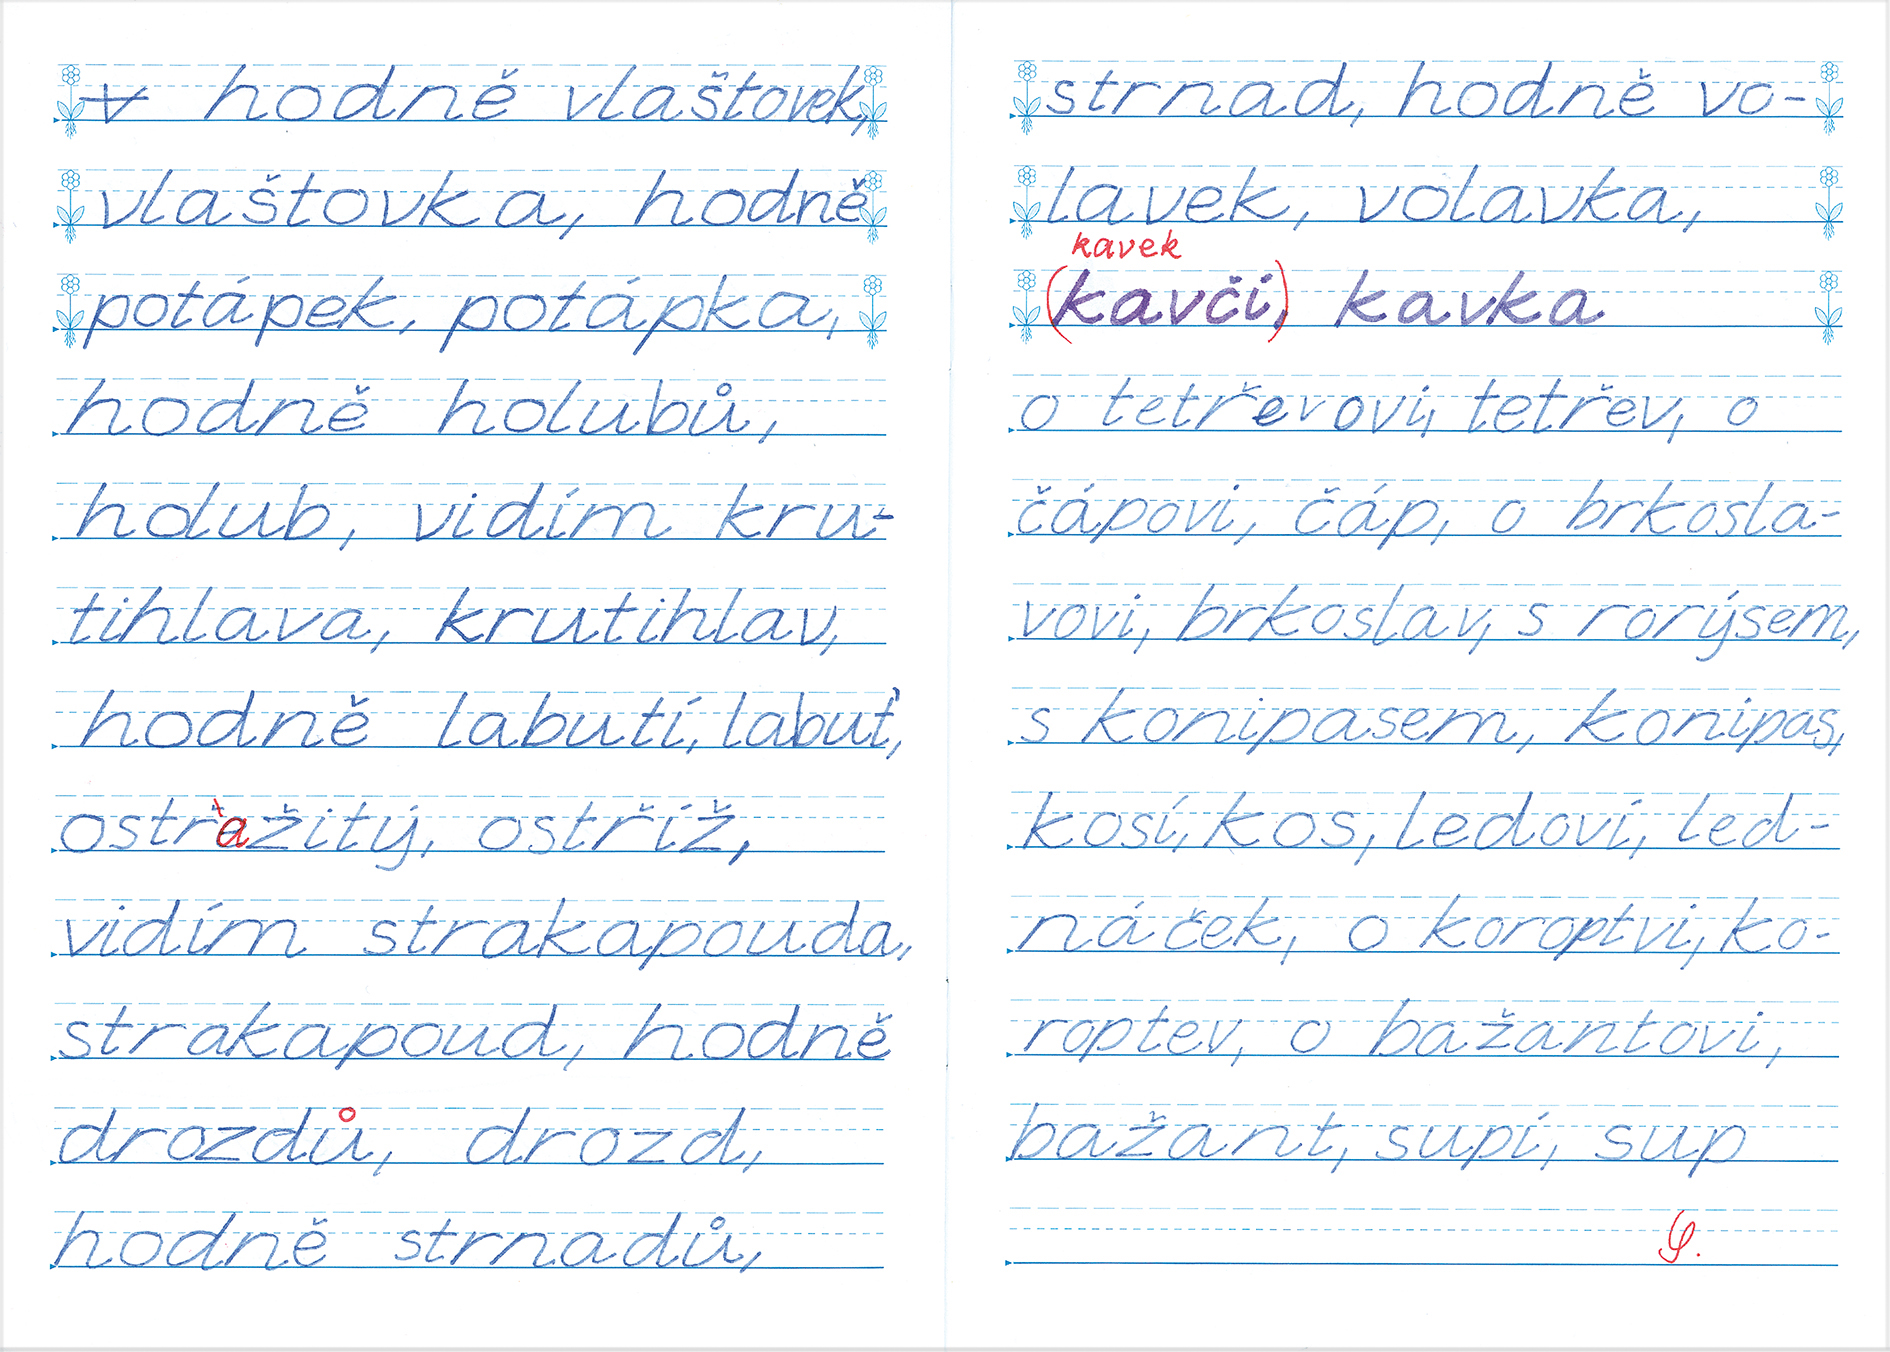 v hodně vlaštovek,
vlaštovka, hodně
potápek, potápka,
hodně holubů,
holub, vidím kru-
tihlava, krutihlav,
hodně labutí, labuť,
ostražitý, ostříž,
vidím strakapouda,
strakapoud, hodně
drozdů, drozd,
hodně strnadů,
strnad, hodně vo-
lavek, volavka,
kavek
(kavčí,) kavka
o tetřevovi, tetřev, o
čápovi, čáp, o brkosla-
vovi, brkoslav, s rorýsem,
s konipasem, konipas,
kosí, kos, ledoví, led-
ňáček, o koroptvi, ko-
roptev, o bažantovi,
bažant, supí, sup